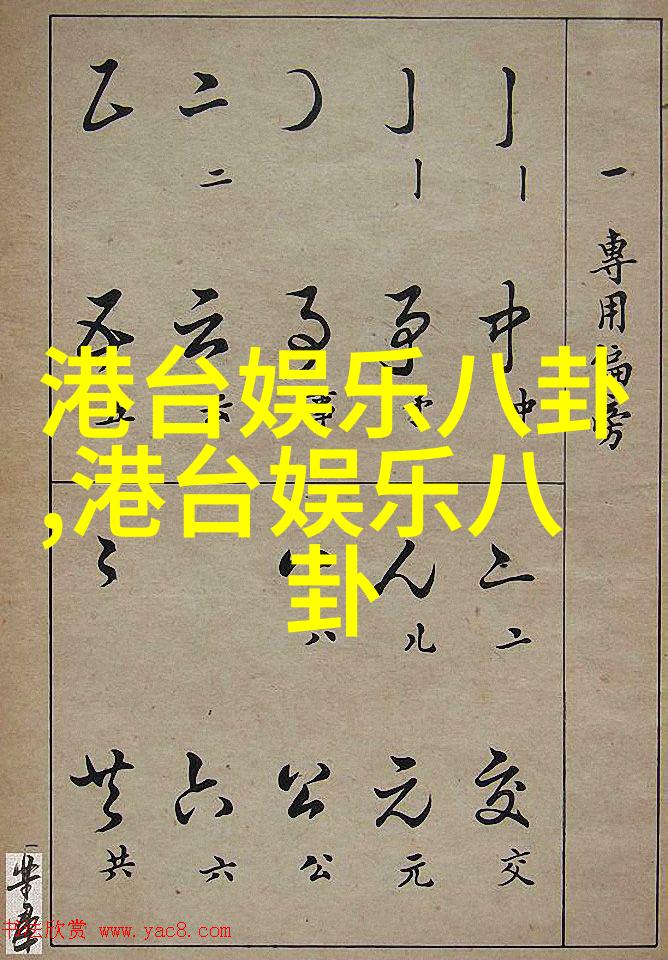 一 專用偏旁
丨
中
丨
事
事
二
二
云
云
五
港台娱乐八卦
,港台娱乐八
卦
二
交
交
儿
元
元
八
公
公
六
六
共
共
书法欣赏 www.yac8.com